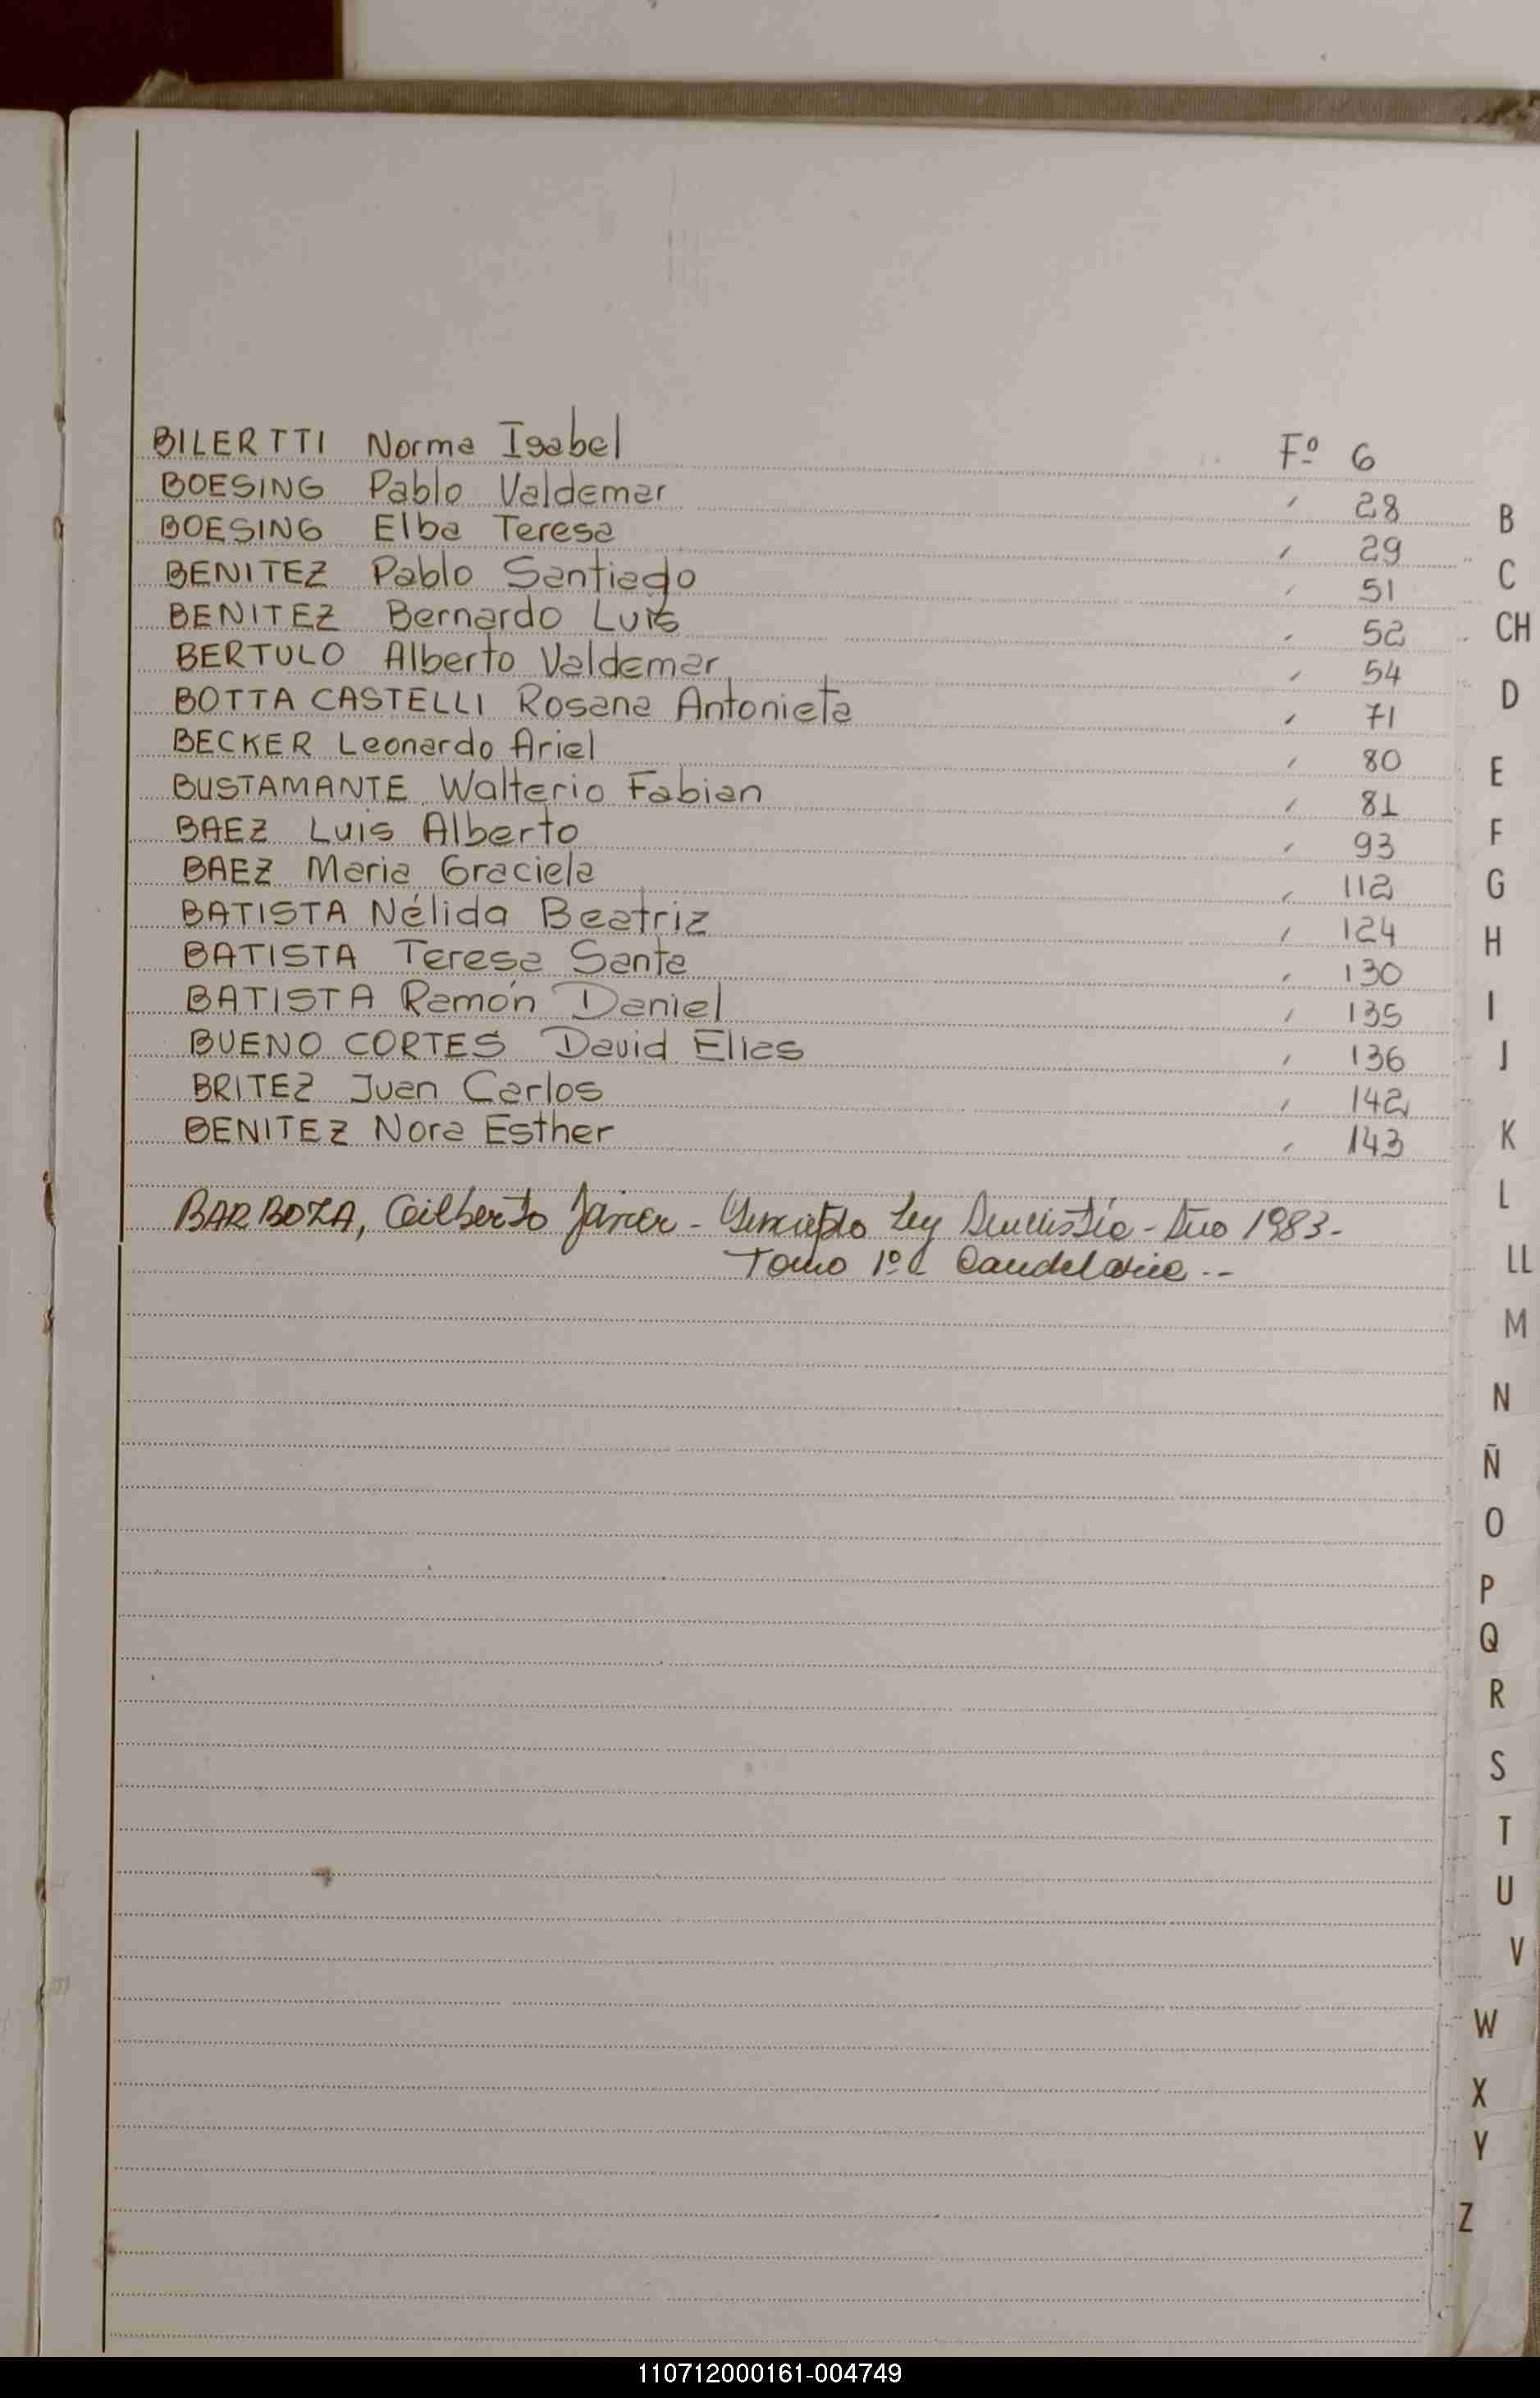 BILERTTI Norma Isabel Fº 6
BOESING Pablo Valdemar " 28
BOESING Elba Teresa " 29
BENITEZ Pablo Santiago " 51
BENITEZ Bernardo Luis " 52
BERTULO Alberto Valdemar " 54
BOTTA CASTELLI Rosana Antonieta " 71
BECKER Leonardo Ariel " 80
BUSTAMANTE Walterio Fabian " 81
BAEZ Luis Alberto " 93
BAEZ Maria Graciela " 112
BATISTA Nélida Beatriz " 124
BATISTA Teresa Santa " 130
BATISTA Ramón Daniel " 135
BUENO CORTES David Elias " 136
BRITEZ Juan Carlos " 142
BENITEZ Nora Esther " 143
BARBOZA, Gilberto Javier - Inscripto Ley Amnistía - Año 1983-
Tomo 1º Candelaria --
B
C
CH
D
E
F
G
H
I
J
K
L
LL
M
N
Ñ
O
P
Q
R
S
T
U
V
W
X
Y
Z
110712000161-004749